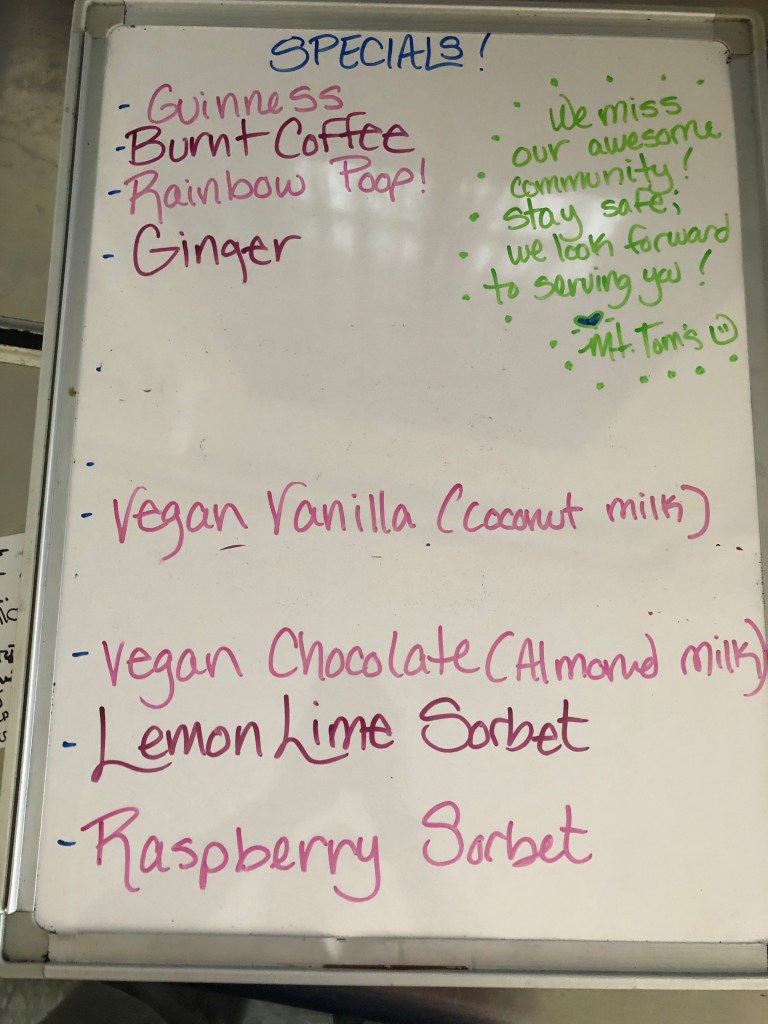 SPECIALS!
- Guinness
- Burnt Coffee
- Rainbow Poop!
- Ginger
-
-
- Vegan Vanilla (coconut milk)
- Vegan Chocolate (Almond milk)
- Lemon Lime Sorbet
- Raspberry Sorbet
We miss
our awesome
community!
stay safe;
we look forward
to serving you!
Mt. Tom's